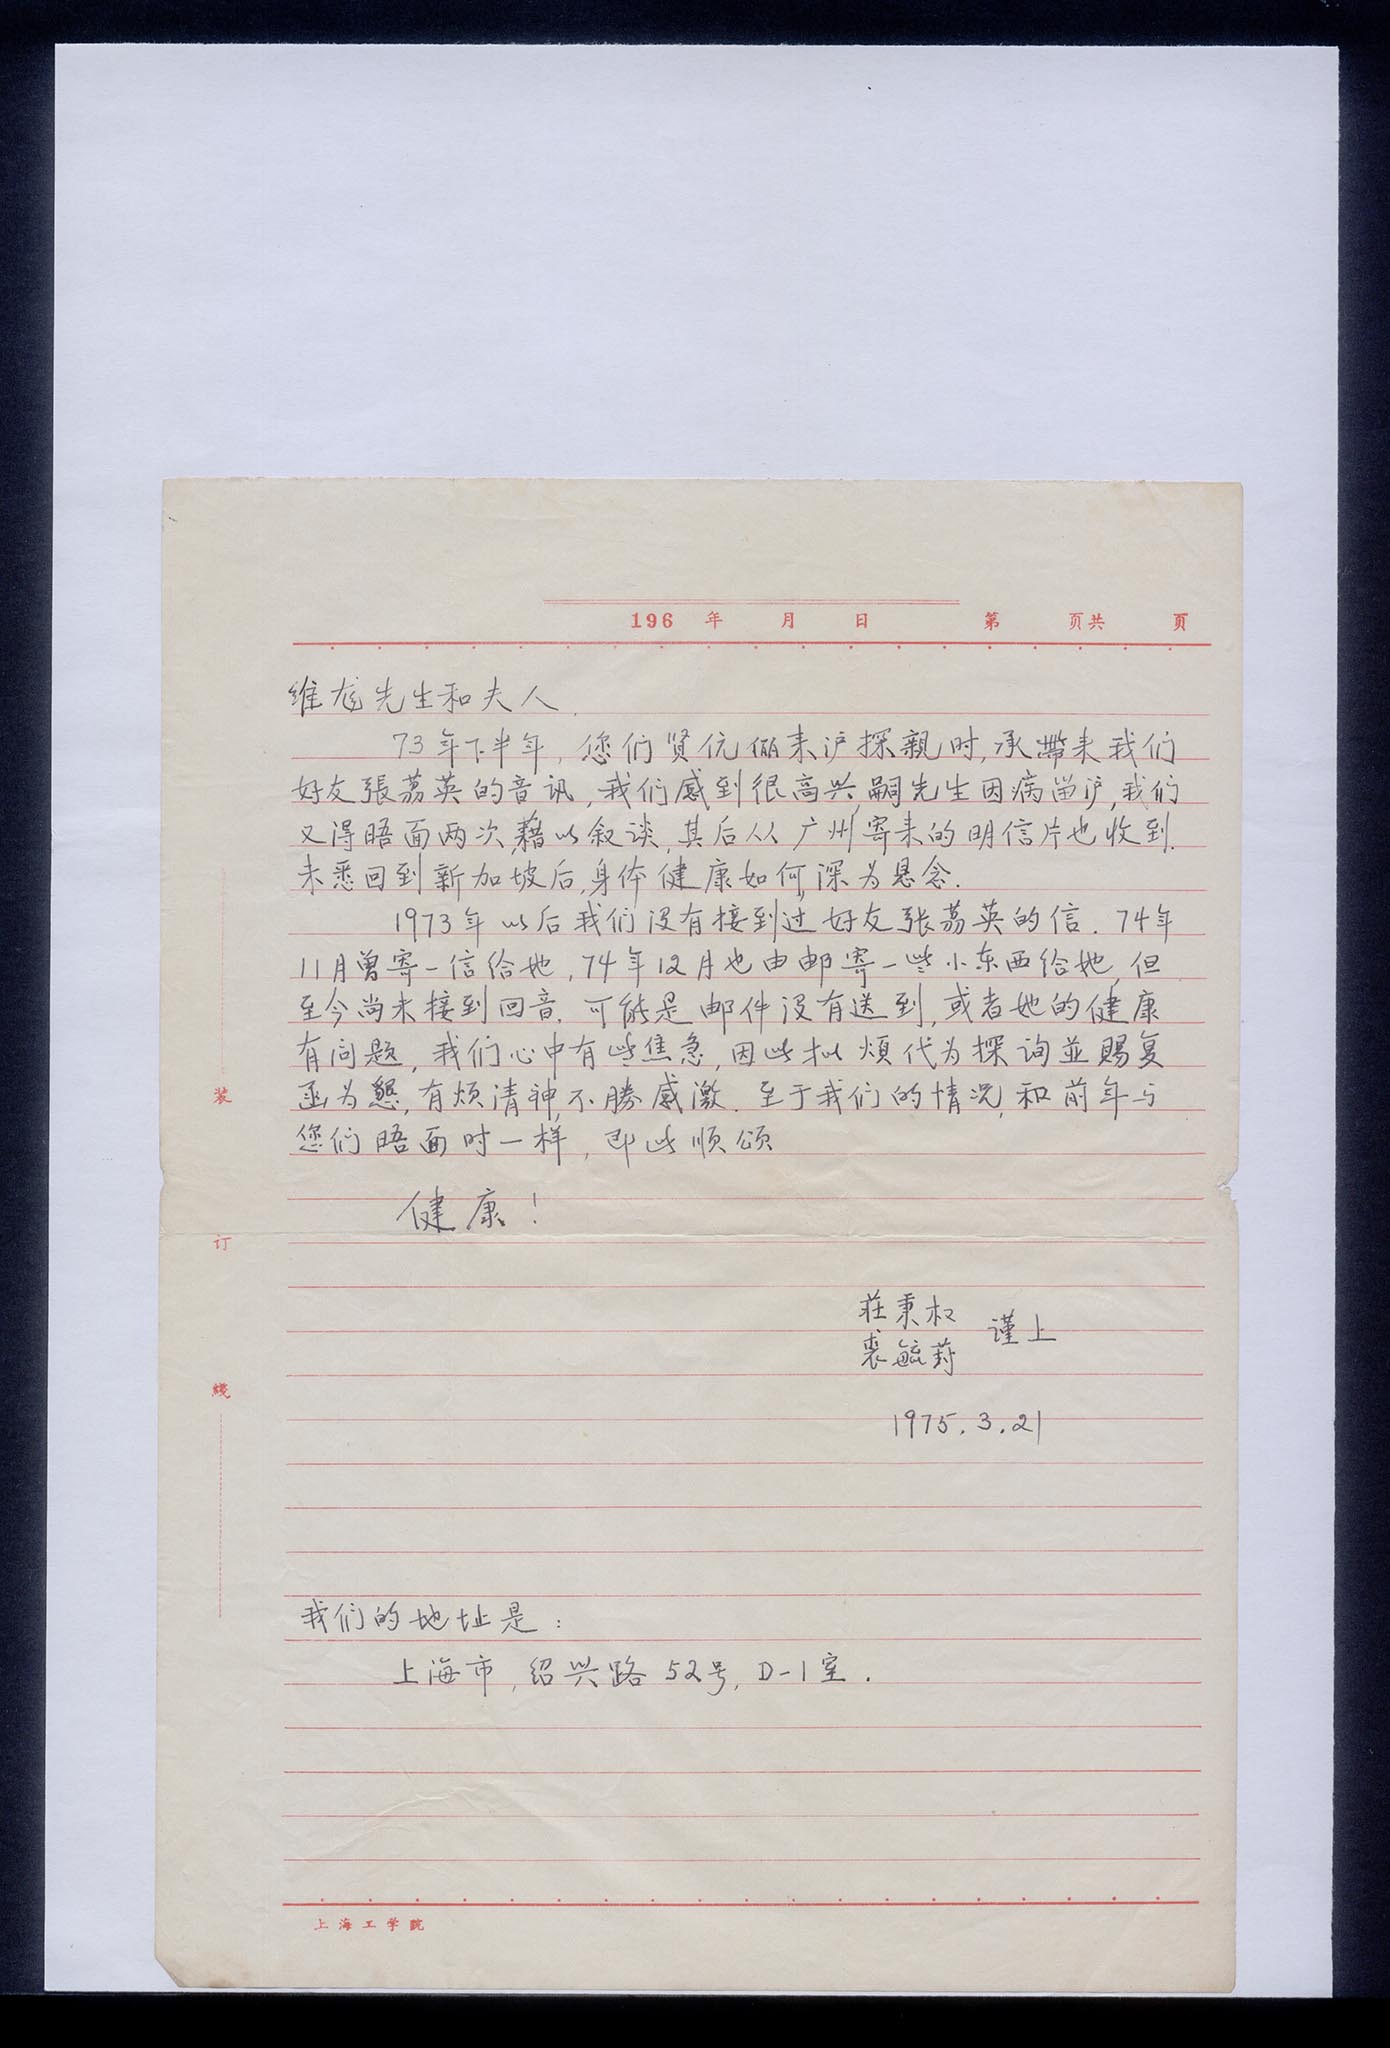 196 年 月 日 第 页共 页
维庞先生和夫人.
73年下半年, 您们贤伉俪来沪探親时, 承帶来我们
好友張荔英的音讯, 我们感到很高兴, 嗣先生因病留沪, 我们
又得晤面两次, 藉以叙谈, 其后从广州寄来的明信片也收到.
未悉回到新加坡后, 身体健康如何, 深为悬念.
1973年以后我们没有接到过好友張荔英的信. 74年
11月曾寄一信给她, 74年12月也由邮寄一些小东西给她, 但
至今尚未接到回音. 可能是邮件没有送到, 或者她的健康
有问题, 我们心中有些焦急, 因此拟烦代为探询並赐复
函为懇, 有烦清神, 不勝感激. 至于我们的情况, 和前年与
您们晤面时一样, 即此顺颂
健康!
莊秉权
裘毓葑 谨上
1975.3.21
我们的地址是:
上海市, 绍兴路52号, D-1室.
装
订
綫
上海工学院